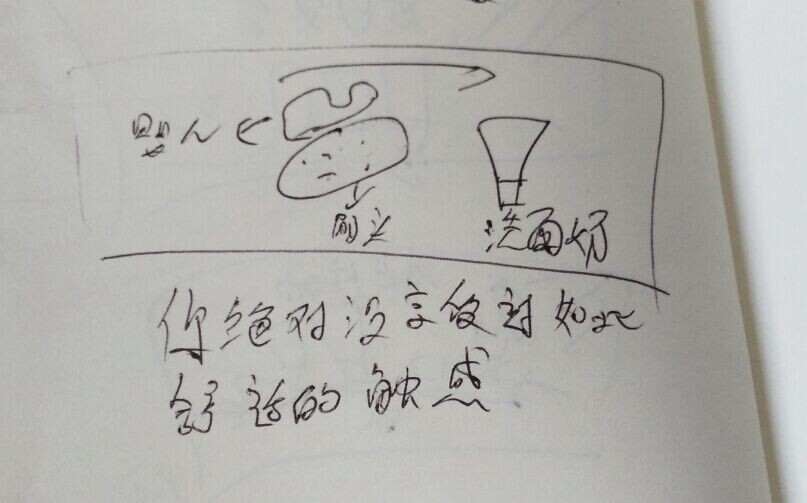 刷头
洗面奶
你绝对没享受过如此
舒适的触感